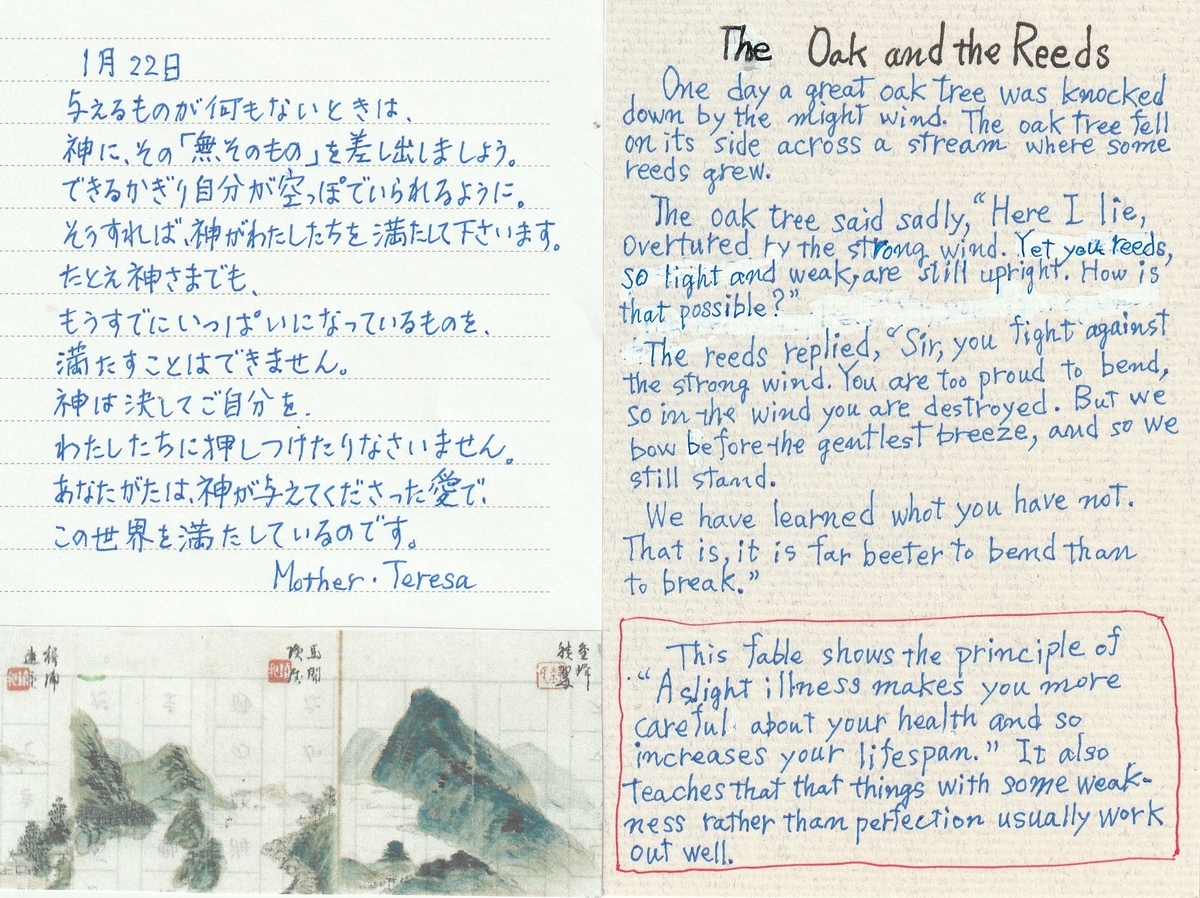 1月22日
与えるものが何もないときは、
神に、その「無そのもの」を差し出しましょう。
できるかぎり自分が空っぽでいられるように。
そうすれば、神がわたしたちを満たして下さいます。
たとえ神さまでも、
もうすでにいっぱいになっているものを、
満たすことはできません。
神は決してご自分を、
わたしたちに押しつけたりなさいません。
あなたがたは、神が与えてくださった愛で、
この世界を満たしているのです。
Mother・Teresa
The Oak and the Reeds
One day a great oak tree was knocked
down by the might wind. The oak tree fell
on its side across a stream where some
reeds grew.
The oak tree said sadly, "Here I lie,
overtured ry the strong wind. Yet you reeds,
so light and weak, are still upright. How is
that possible?"
The reeds replied, "Sir, you fight against
the strong wind. You are too proud to bend,
so in the wind you are destroyed. But we
bow before the gentlest breeze, and so we
still stand.
We have learned whot you have not.
That is, it is far beeter to bend than
to break."
This fable shows the principle of
"A slight illness makes you more
careful about your health and so
increases your lifespan." It also
teaches that that things with some weak-
ness rather than perfection usually work
out well.